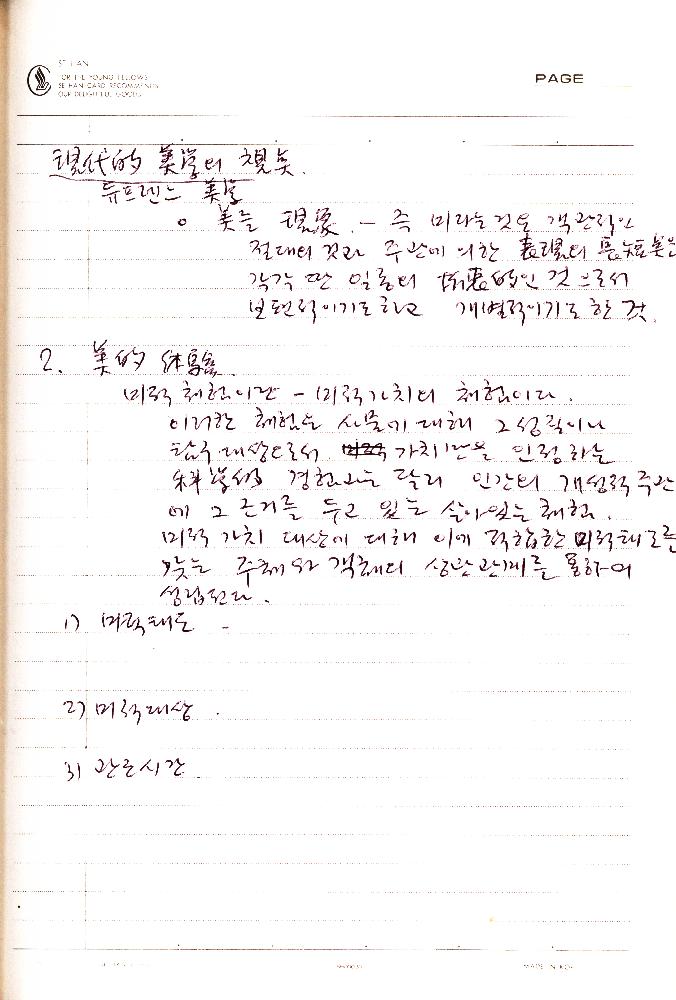 SE HAN
FOR THE YOUNG FELLOWS
SE HAN CARD RECOMMENDS
OUR DELIGHTFUL GOODS
PAGE
現代的 美学의 視点.
듀프렌느 美学
o 美는 現象. - 즉 미라는 것은 객관적인
절대의 것과 주관에 의한 表現의
각각 딴 일종의 的인 것으로서
보편적이기도 하고 개별적이기도 한 것.
2. 美的 体験.
미적 체험이란 - 미적가치의 체험이다.
이러한 체험은 사물에 대해 그 성격이나
탐구대상으로서 가치만을 인정하는
科学的 경험과는 달리 인간의 개성적 주관
에 그 근거를 두고 있는 살아있는 체험.
미적 가치 대상에 대해 이에 적합한 미적태도를
갖는 주체와 객체의 상관관계를 통하여
성립된다.
1) 미적태도 -
2) 미적대상.
3) 관조시간.
MADE IN KOREA